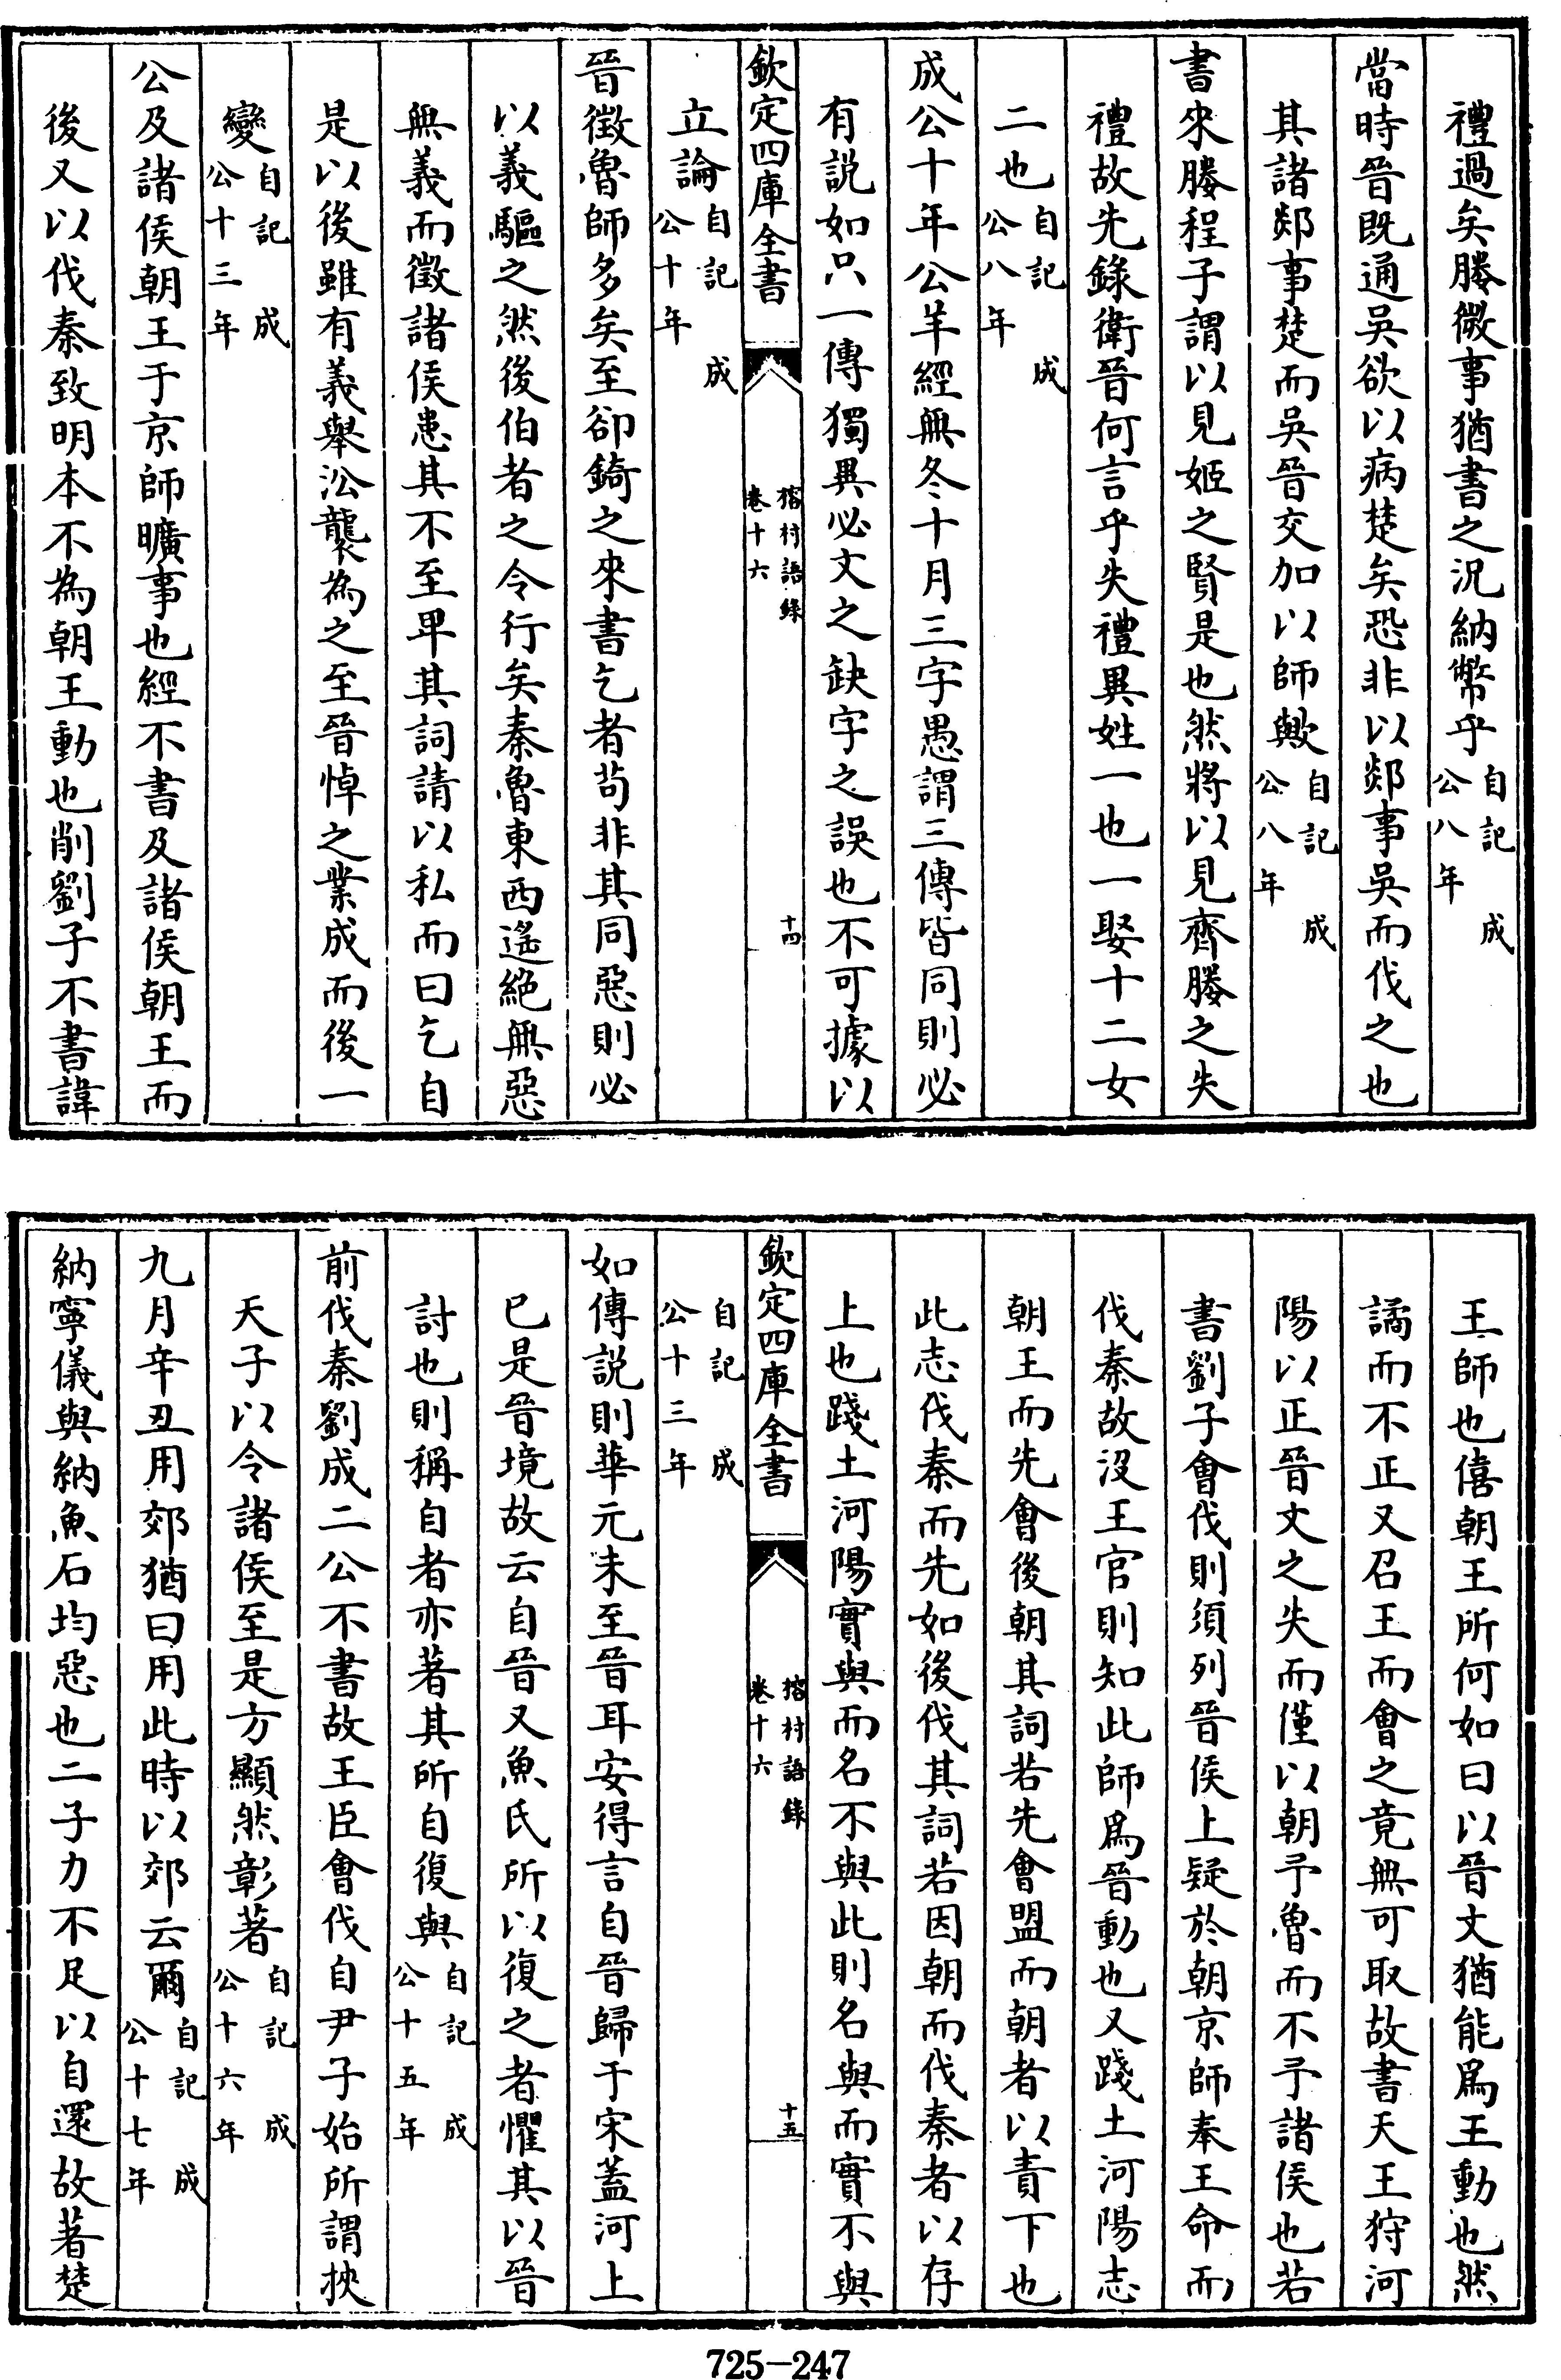 禮過矣媵微事猶書之況納幣乎自記成公八年
當時晉既通吳欲以病楚矣恐非以郯事吳而伐之也
其諸郯事楚而吳晉交加以師歟自記成公八年
書來媵程子謂以見姬之賢是也然將以見齊媵之失
禮故先錄衛晉何言乎失禮異姓一也一娶十二女
二也自記成公八年
成公十年公羊經無冬十月三字愚謂三傳皆同則必
有説如只一傳獨異必文之缺字之誤也不可據以
欽定四庫全書 榕村語錄卷十六 十四
立論自記成公十年
晉徵魯師多矣至郤錡之來書乞者茍非其同惡則必
以義驅之然後伯者之令行矣秦魯東西遙絶無惡
無義而徵諸侯患其不至卑其詞請以私而曰乞自
是以後雖有義舉㳂襲為之至晉悼之業成而後一
變自記成公十三年
公及諸侯朝王于京師曠事也經不書及諸侯朝王而
後又以伐秦致明本不為朝王動也削劉子不書諱
王師也僖朝王所何如曰以晉文猶能爲王動也然
譎而不正又召王而會之竟無可取故書天王狩河
陽以正晉文之失而僅以朝予魯而不予諸侯也若
書劉子會伐則須列晉侯上疑於朝京師奉王命而
伐秦故沒王官則知此師爲晉動也又踐土河陽志
朝王而先會後朝其詞若先會盟而朝者以責下也
此志伐秦而先如後伐其詞若因朝而伐秦者以存
上也踐土河陽實與而名不與此則名與而實不與
欽定四庫全書 榕村語錄卷十六 十五
自記成公十三年
如傳説則華元未至晉耳安得言自晉歸于宋蓋河上
已是晉境故云自晉又魚氏所以復之者懼其以晉
討也則稱自者亦著其所自復與自記成公十五年
前伐秦劉成二公不書故王臣會伐自尹子始所謂挾
天子以令諸侯至是方顯然彰著自記成公十六年
九月辛丑用郊猶曰用此時以郊云爾自記成公十七年
納寧儀與納魚石均惡也二子力不足以自還故著楚
725-247